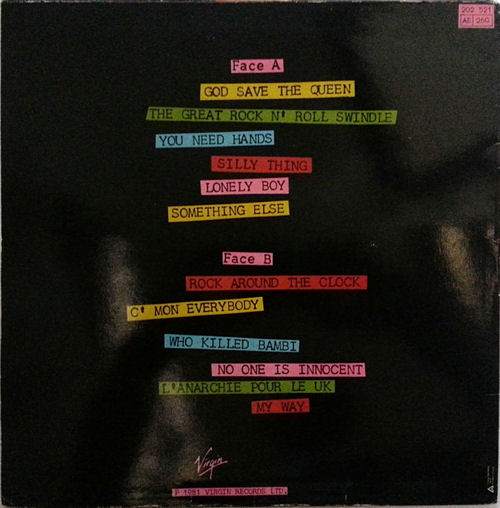 202 521
AE 260
Face A
GOD SAVE THE QUEEN
THE GREAT ROCK N' ROLL SWINDLE
YOU NEED HANDS
SILLY THING
LONELY BOY
SOMETHING ELSE
Face B
ROCK AROUND THE CLOCK
C' MON EVERYBODY
WHO KILLED BAMBI
NO ONE IS INNOCENT
L'ANARCHIE POUR LE UK
MY WAY
Virgin
P 1981 VIRGIN RECORDS LTD.